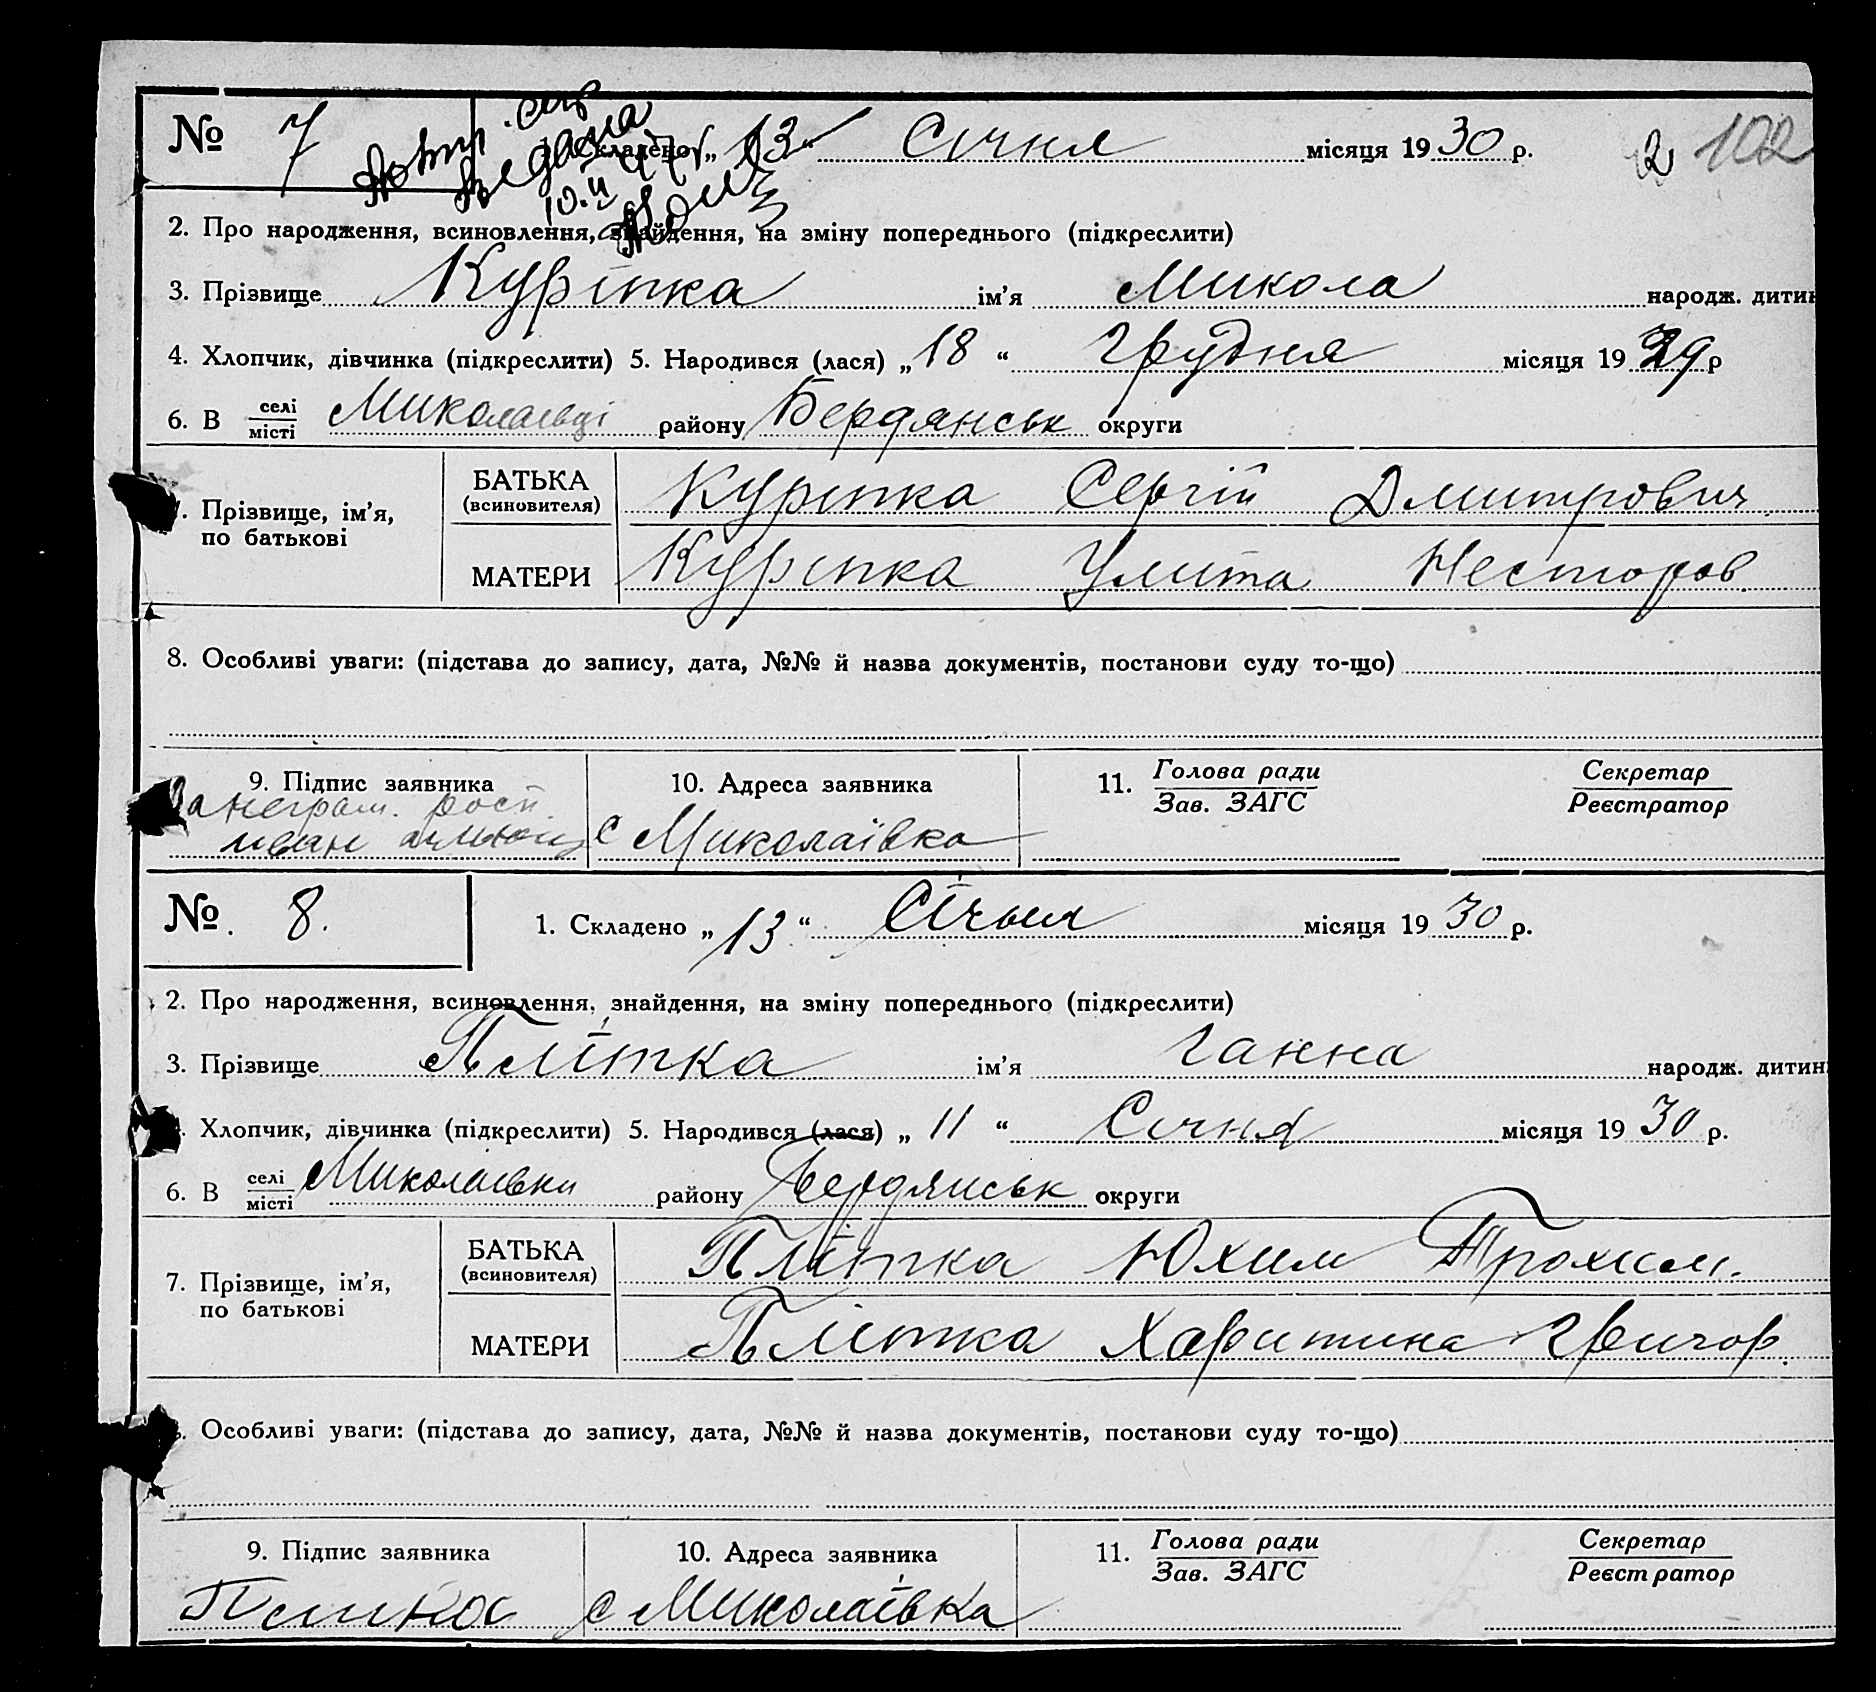 № 7 Складено „13“ Січня місяця 1930 р. 2 102
2. Про народження, всиновлення, знайдення, на зміну попереднього (підкреслити)
3. Прізвище Куріпка ім'я Микола народж. дитин
4. Хлопчик, дівчинка (підкреслити) 5. Народився (лася) „18“ Грудня місяця 1929 р
6. В селі місті Миколаєвці району Бердянськ округи
Прізвище, ім'я, по батькові
БАТЬКА (всиновителя) Куріпка Сергій Дмитрович
МАТЕРИ Куріпка Улита Несторов
8. Особливі уваги: (підстава до запису, дата, №№ й назва документів, постанови суду то-що)
9. Підпис заявника 10. Адреса заявника 11. Голова ради Зав. ЗАГС Секретар Реєстратор
неграм. росп.
Іван с Миколаївка
№. 8. 1. Складено „13“ Січня місяця 1930 р.
2. Про народження, всиновлення, знайдення, на зміну попереднього (підкреслити)
3. Прізвище Плітка ім'я Ганна народж. дитин
Хлопчик, дівчинка (підкреслити) 5. Народився (лася) „11“ Січня місяця 1930 р.
6. В селі місті Миколаївки району Бердянськ округи
7. Прізвище, ім'я, по батькові
БАТЬКА (всиновителя) Плітка Юхим Трохим.
МАТЕРИ Плітка Харитина Григор.
Особливі уваги: (підстава до запису, дата, №№ й назва документів, постанови суду то-що)
9. Підпис заявника 10. Адреса заявника 11. Голова ради Зав. ЗАГС Секретар Реєстратор
с Миколаївка